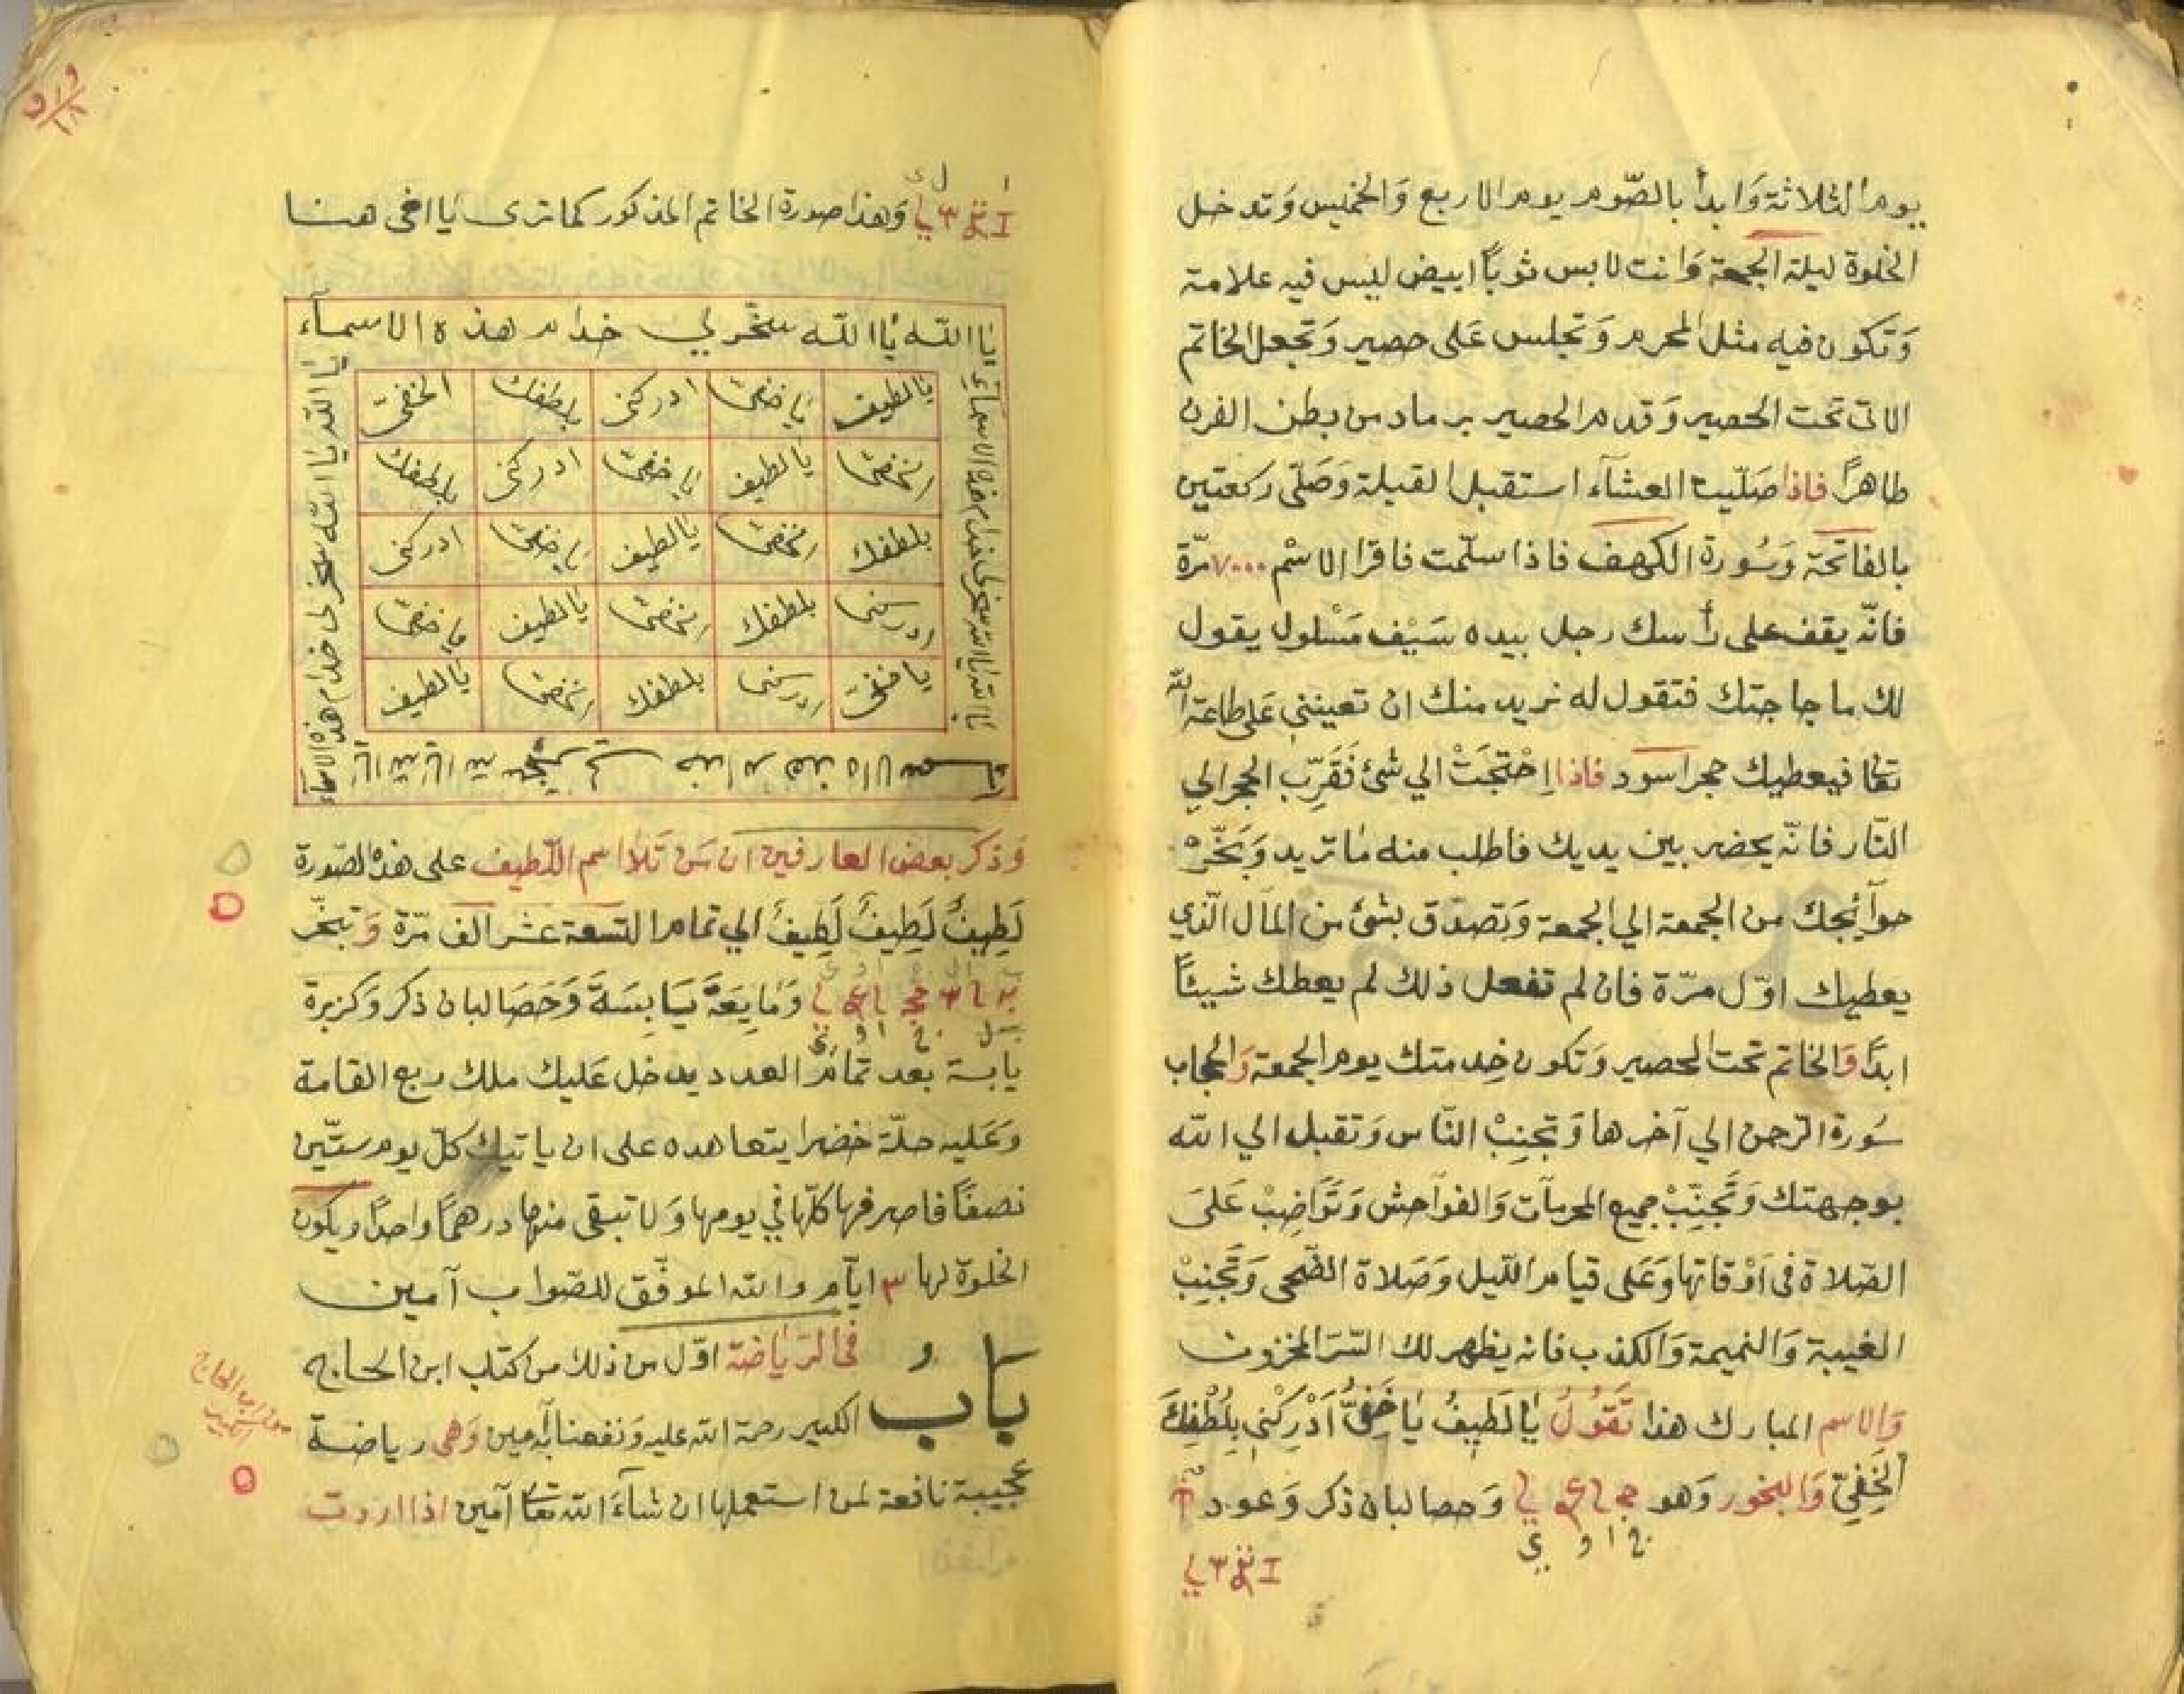 يوم الثلاثة وَابدأ بالصّوم يوم الاربع وَالخميس وَتدخل
الخلوة ليلة الجمعة وَانت لابس ثوبًا ابيض ليس فيه علامة
وَتكون فيه مثل المحرم وَتجلس عَلى حصير وَتجعل الخاتم
الاتى تحت الحصير وَقدام الحصير برماد من بطن الفرن
طاهرًا فاذا صَلّيت العشآء استقبل القبلة وَصَلّى ركعتين
بالفاتحة وَسُورة الكهف فاذا سلّمت فاقرا الاسْم ٧٠٠٠ مرّة
فانّه يقف على رأسك رجل بيده سَيْف مَسْلول يقول
لك ما حاجتك فتقول له نريد منك ان تعينني عَلى طاعة الله
تعا فيعطيك حجر اسود فاذا احْتجَتْ الي شئ فَقَرِّب الحجر الي
النّار فانّه يحضر بين يديك فاطلب منه مَا تريد وَبَخّرْ
حوآئجك من الجمعة الي الجمعة وَتصدّق بشئ من المآل الّذي
يعطيك اوّل مرّة فان لم تفعل ذلك لم يعطك شيئًا
ابدًا وَالخاتم تحت الحصير وَتكون خِدمتك يوم الجمعة وَالحجاب
سُورة الرّحمن الي آخرها وَتجنِبْ النّاس وَتقبل الي الله
بوجهتك وَتَجنِّبْ جميع المحرمآت وَالفوآحش وَتَوَاضِبْ عَلىَ
الصّلاة فى اَوْقاتها وَعَلى قيام اللّيل وَصَلاة الضّحى وَتَجَنِبْ
الغيبة وَالنميمة وَالكذب فانه يظهر لك السّرَ المخزون
وَالاسم المبارك هذا تَقُوُلُ يَا لَطِيفُ يَا خَفِيُّ اَدْرِكْنِي بِلُطْفِكَ
الخَفِيّ وَالبخور وَهو وَحصا لبان ذكر وَعود
وَهذا صورة الخاتم المذكور كما ترى يَا اخى هنا
يَا الله يَا الله سخّر لي خدام هذه الاسماء
يا الله يا الله سخر لى خدام هذه الاسماء
يا الله يا الله سخر لى خدام هذه الاسماء
يَا لطيف يَا خفى ادركنى بلطفك الخفى
الخفى يَا لطيف يا خفى ادركنى بلطفك
بلطفك الخفى يَا لطيف يا خفى ادركنى
ادركنى بلطفك الخفى يَا لطيف يا خفى
يا خفى ادركنى بلطفك الخفى يَا لطيف
وَذكر بعض العارفين ان مَن تَلاَ اسم اللّطيف على هذه الصّورة
لَطِيفُ لَطِيفُ لَطِيفُ الي تمام التسعة عشر الف مَرّة وَتبخّر
وَمَا يعَةَ يَابِسَةَ وَحَصَا لبان ذكر وَكزبرة
يابسة بعد تمام العدد يدخل عَليك ملك ربع القامة
وَعَليه حلّة خضرا يتعاهده على ان ياتيك كلّ يوم ستّين
نصفًا فاصرفها كلّها في يومها وَلا تبقى منها درهمًا واحدًا ويكون
الخلوة لها ٣ ايّام والله الموفّق للصّواب آمين
بَابُ فى الريَاضة اوّل من ذلك من كتاب ابن الحاج
الكبير رحمة الله عليه وَنفعنا به آمين وَهى رياضة
عجيبة نافعة لمن استعملها ان شآءَ الله تعا آمين اذا اردت